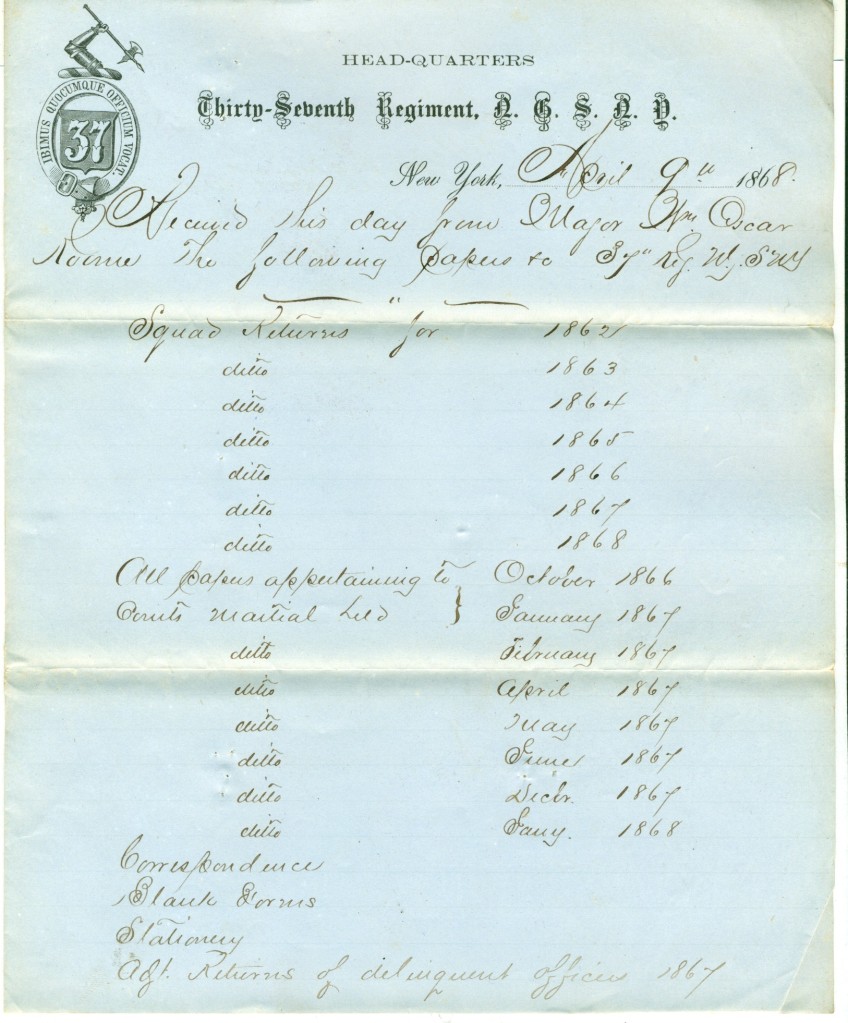 IBIMUS QUOCUMQUE OFFICIUM VOCAT.
37
HEAD-QUARTERS
Thirty-Seventh Regiment, N. G. S. N. Y.
New York, April 9th 1868.
Received this day from Major Wm Oscar
Roome The following papers to 37" Reg. N.G. S.N.Y
"
Squad Returns for 1862
ditto 1863
ditto 1864
ditto 1865
ditto 1866
ditto 1867
ditto 1868
All papers appertaining to } October 1866
Courts Martial held January 1867
ditto February 1867
ditto April 1867
ditto May 1867
ditto June 1867
ditto Decbr. 1867
ditto Jany. 1868
Correspondence
Blank Forms
Stationery
Adjt. Returns of delinquent officers 1867